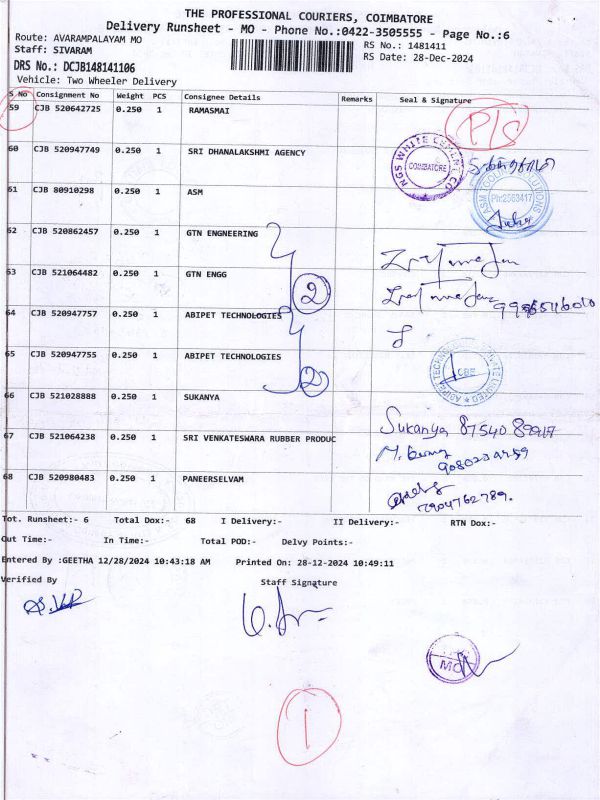 THE PROFESSIONAL COURIERS, COIMBATORE
Delivery Runsheet - MO - Phone No.:0422-3505555 - Page No.:6
Route: AVARAMPALAYAM MO
Staff: SIVARAM
RS No.: 1481411
DRS No.: DCJB148141106
RS Date: 28-Dec-2024
Vehicle: Two Wheeler Delivery
S No Consignment No Weight PCS Consignee Details Remarks Seal & Signature
59 CJB 520642725 0.250 1 RAMASMAI
60 CJB 520947749 0.250 1 SRI DHANALAKSHMI AGENCY
NGS WHITE CEMENT CO
COIMBATORE
61 CJB 80910298 0.250 1 ASM
Ph:2563417
52 CJB 520862457 0.250 1 GTN ENGNEERING
53 CJB 521064482 0.250 1 GTN ENGG
2
54 CJB 520947757 0.250 1 ABIPET TECHNOLOGIES
55 CJB 520947755 0.250 1 ABIPET TECHNOLOGIES
2
CBE
66 CJB 521028888 0.250 1 SUKANYA
Sukanya
67 CJB 521064238 0.250 1 SRI VENKATESWARA RUBBER PRODUC
68 CJB 520980483 0.250 1 PANEERSELVAM
7904762789.
Tot. Runsheet:- 6 Total Dox:- 68 I Delivery:- II Delivery:- RTN Dox:-
Out Time:- In Time:- Total POD:- Delvy Points:-
Entered By :GEETHA 12/28/2024 10:43:18 AM Printed On: 28-12-2024 10:49:11
Verified By Staff Signature
MO
1